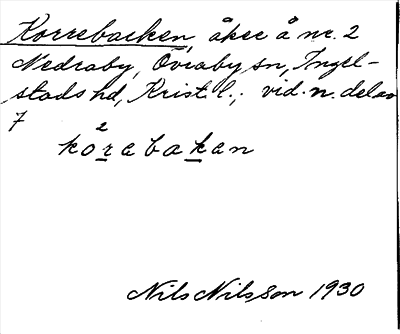 Korrebacken, åker å nr. 2
Nedraby, Övraby sn, Ingel-
stads hd, Krist. l.; vid n. delen
7
2
korabakan
Nils Nilsson 1930